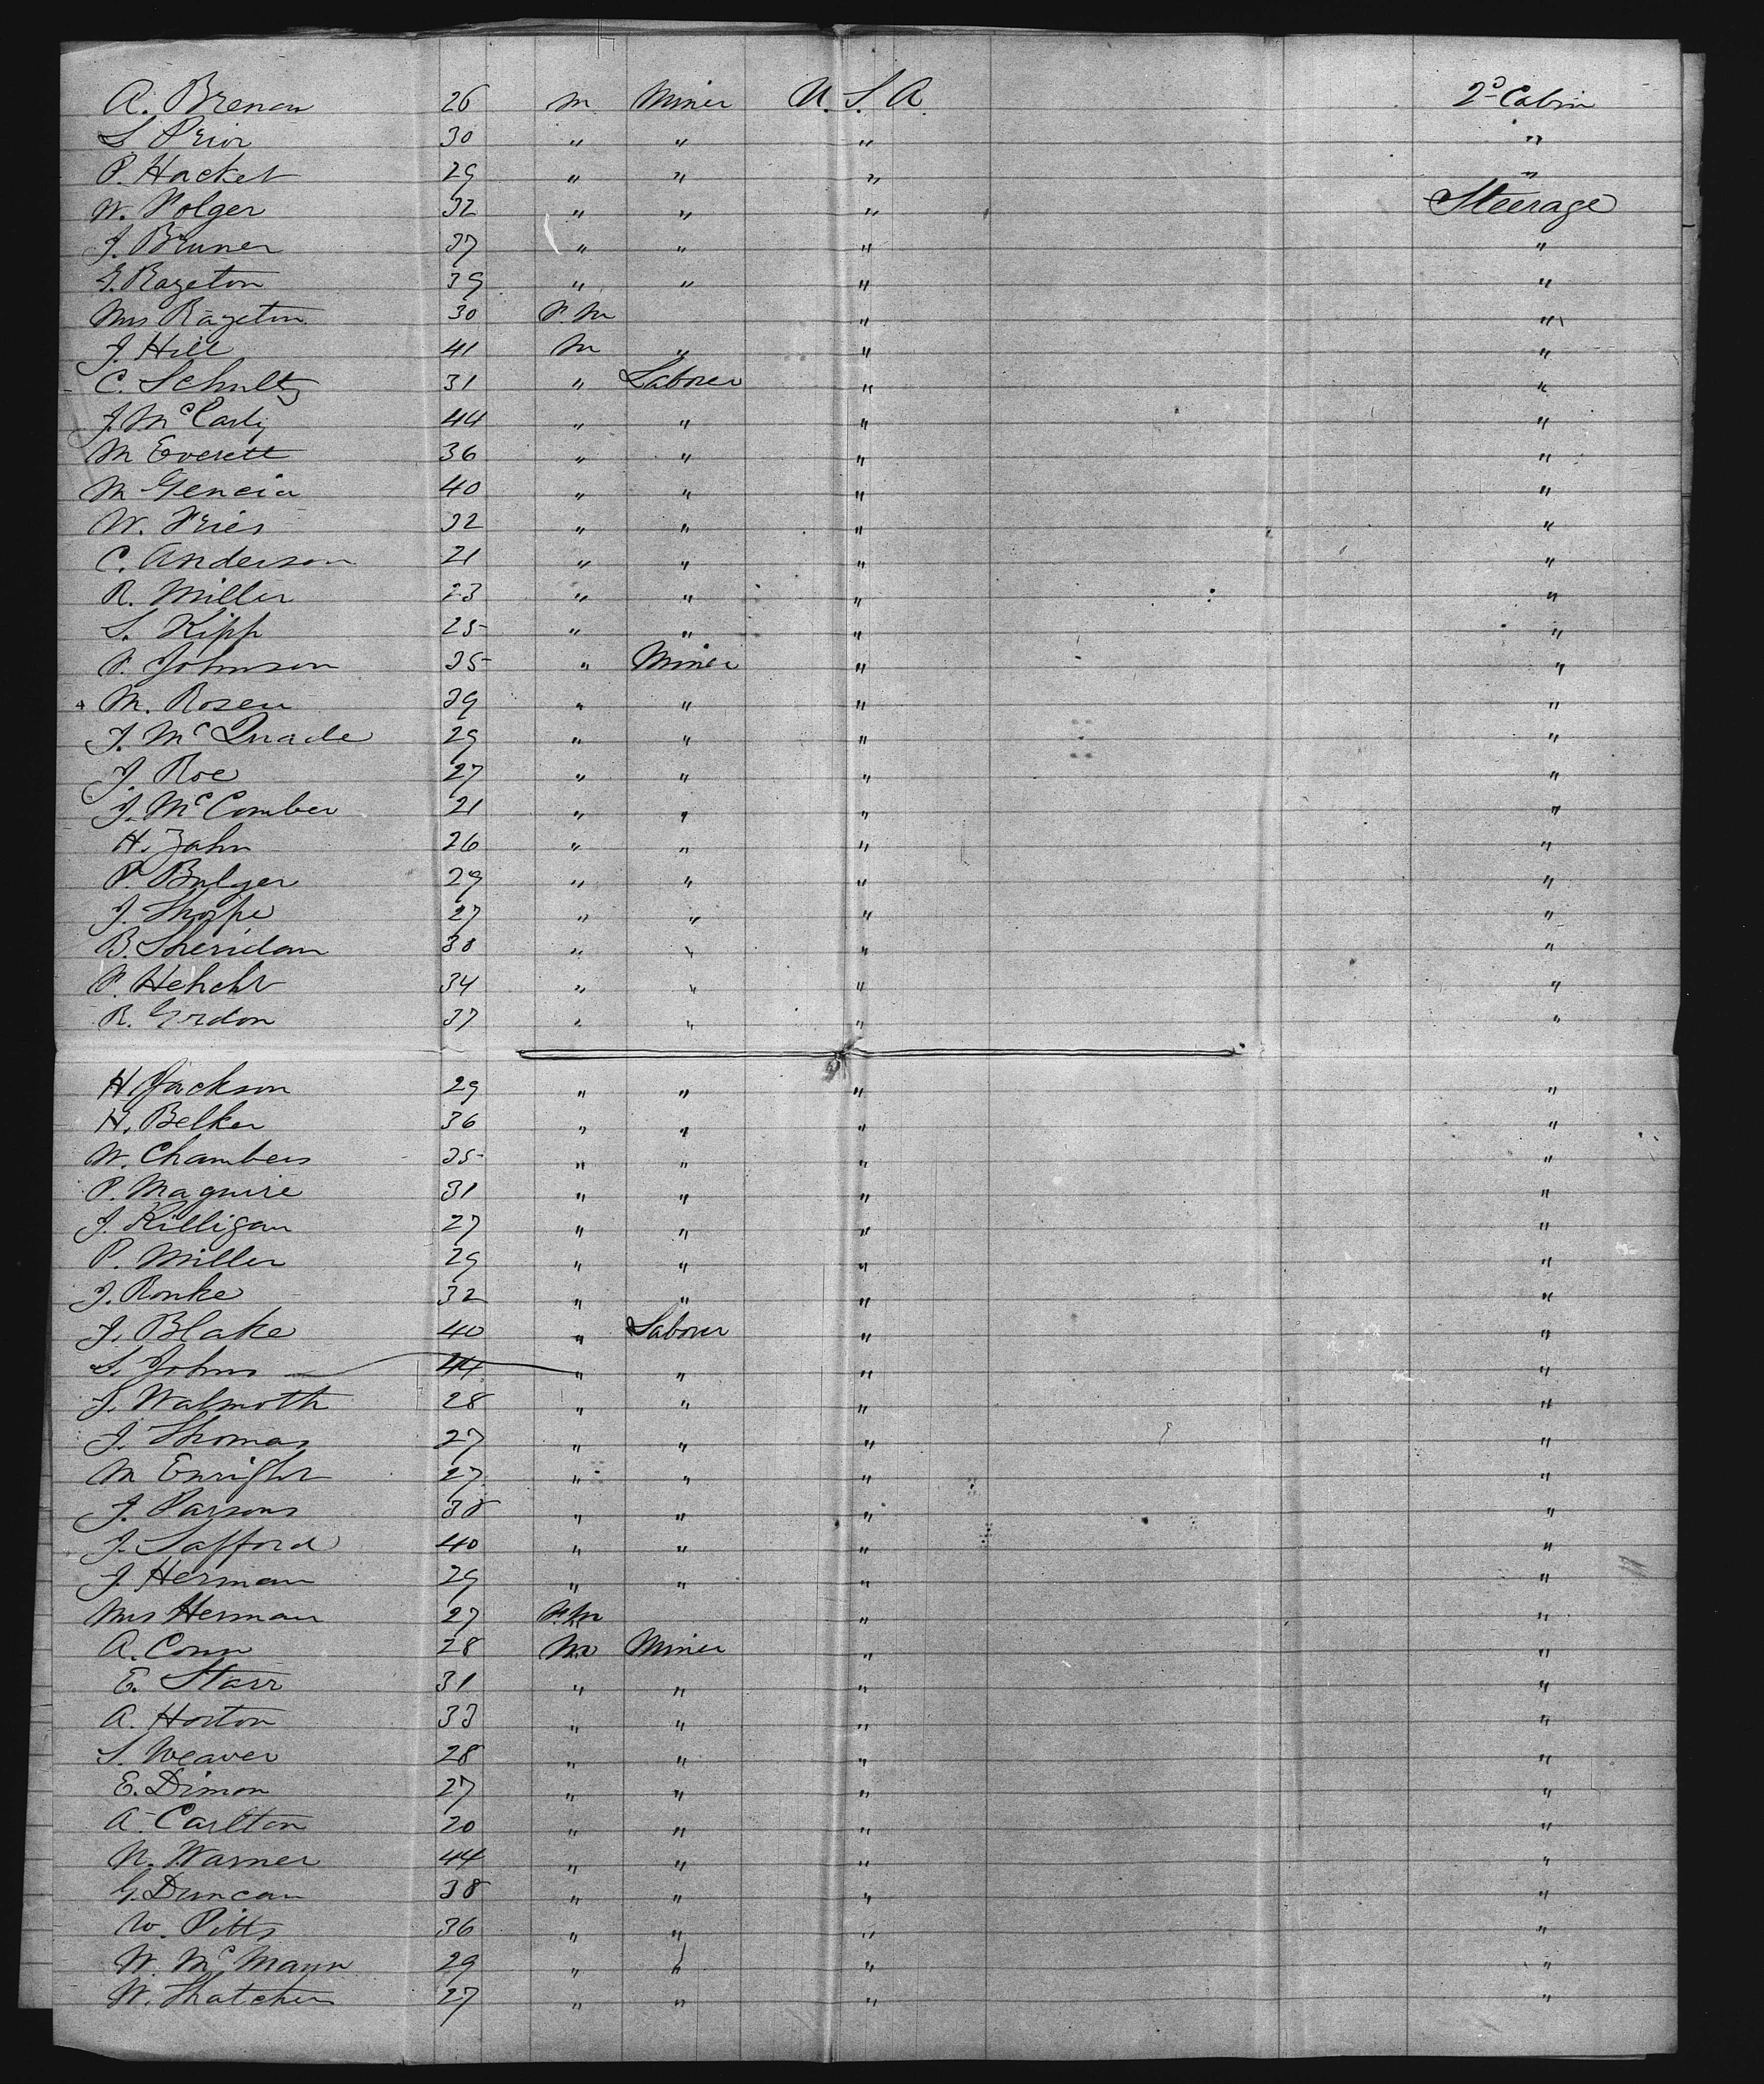 A. Brenan 26 m Miner U.S.A. 2d Cabin
S. Prior 30 " " " "
P. Hacket 29 " " " "
W. Folger 32 " " " Steerage
J. Bruner 37 " " " "
G. Rageton 39 " " " "
Mrs Rageton 30 F.m " "
J. Hill 41 m " " "
C. Schultz 31 " Laborer " "
J. McCarty 44 " " " "
M Everett 36 " " " "
M Gencia 40 " " " "
W. Fries 32 " " " "
C. Anderson 21 " " " "
R. Miller 23 " " " "
S. Kipp 25 " " " "
P. Johnson 35 " Miner " "
M. Rosen 39 " " " "
J. McQuade 29 " " " "
J. Roe 27 " " " "
J. McComber 21 " " " "
H. Zahn 26 " " " "
P. Bulger 29 " " " "
J. Thorpe 27 " " " "
B. Sheridan 38 " " " "
P. Hehcht 34 " " " "
R. Grdon 37 " " " "
H. Jackson 29 " " " "
H. Belker 36 " " " "
W. Chambers 35 " " " "
P. Maguire 31 " " " "
J. Killigan 27 " " " "
P. Miller 29 " " " "
J. Ronke 32 " " " "
J. Blake 40 " Laborer " "
S. Johns 44 " " " "
J. Walmoth 28 " " " "
J. Thomas 27 " " " "
M Enright 27 " " " "
J. Parsons 38 " " " "
J. Safford 40 " " " "
J. Herman 29 " " " "
Mrs Herman 27 F.m " "
A. Conn 28 m Miner " "
E. Starr 31 " " " "
A. Horton 33 " " " "
S. Weaver 28 " " " "
E. Dimon 27 " " " "
A. Carlton 20 " " " "
N. Warner 44 " " " "
G. Duncan 38 " " " "
W. Pitts 36 " " " "
W. McMann 29 " " " "
W. Thatcher 27 " " " "